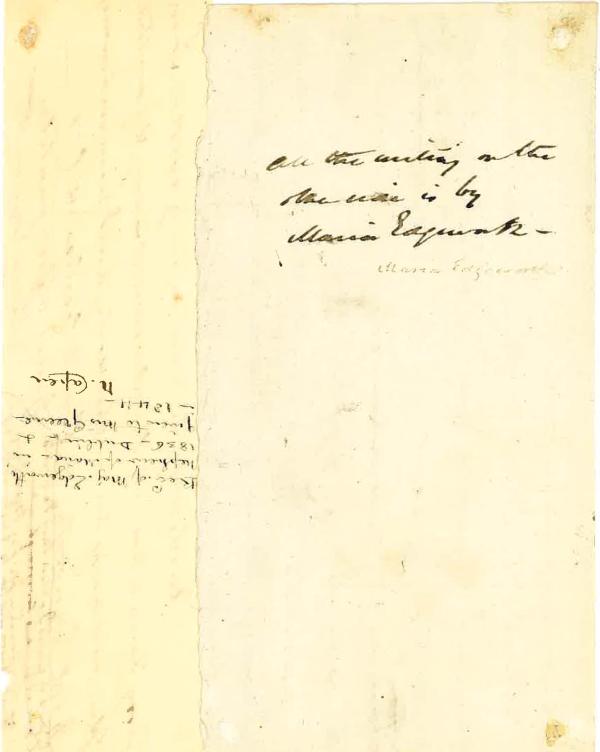 All the writing on the
other side is by
Maria Edgeworth –
Maria Edgeworth
Rec. of Maj. Edgeworth
nephew of Maria – in
1836 – Dublin &
given to Mrs Greene
– 1841 –
N. Capen